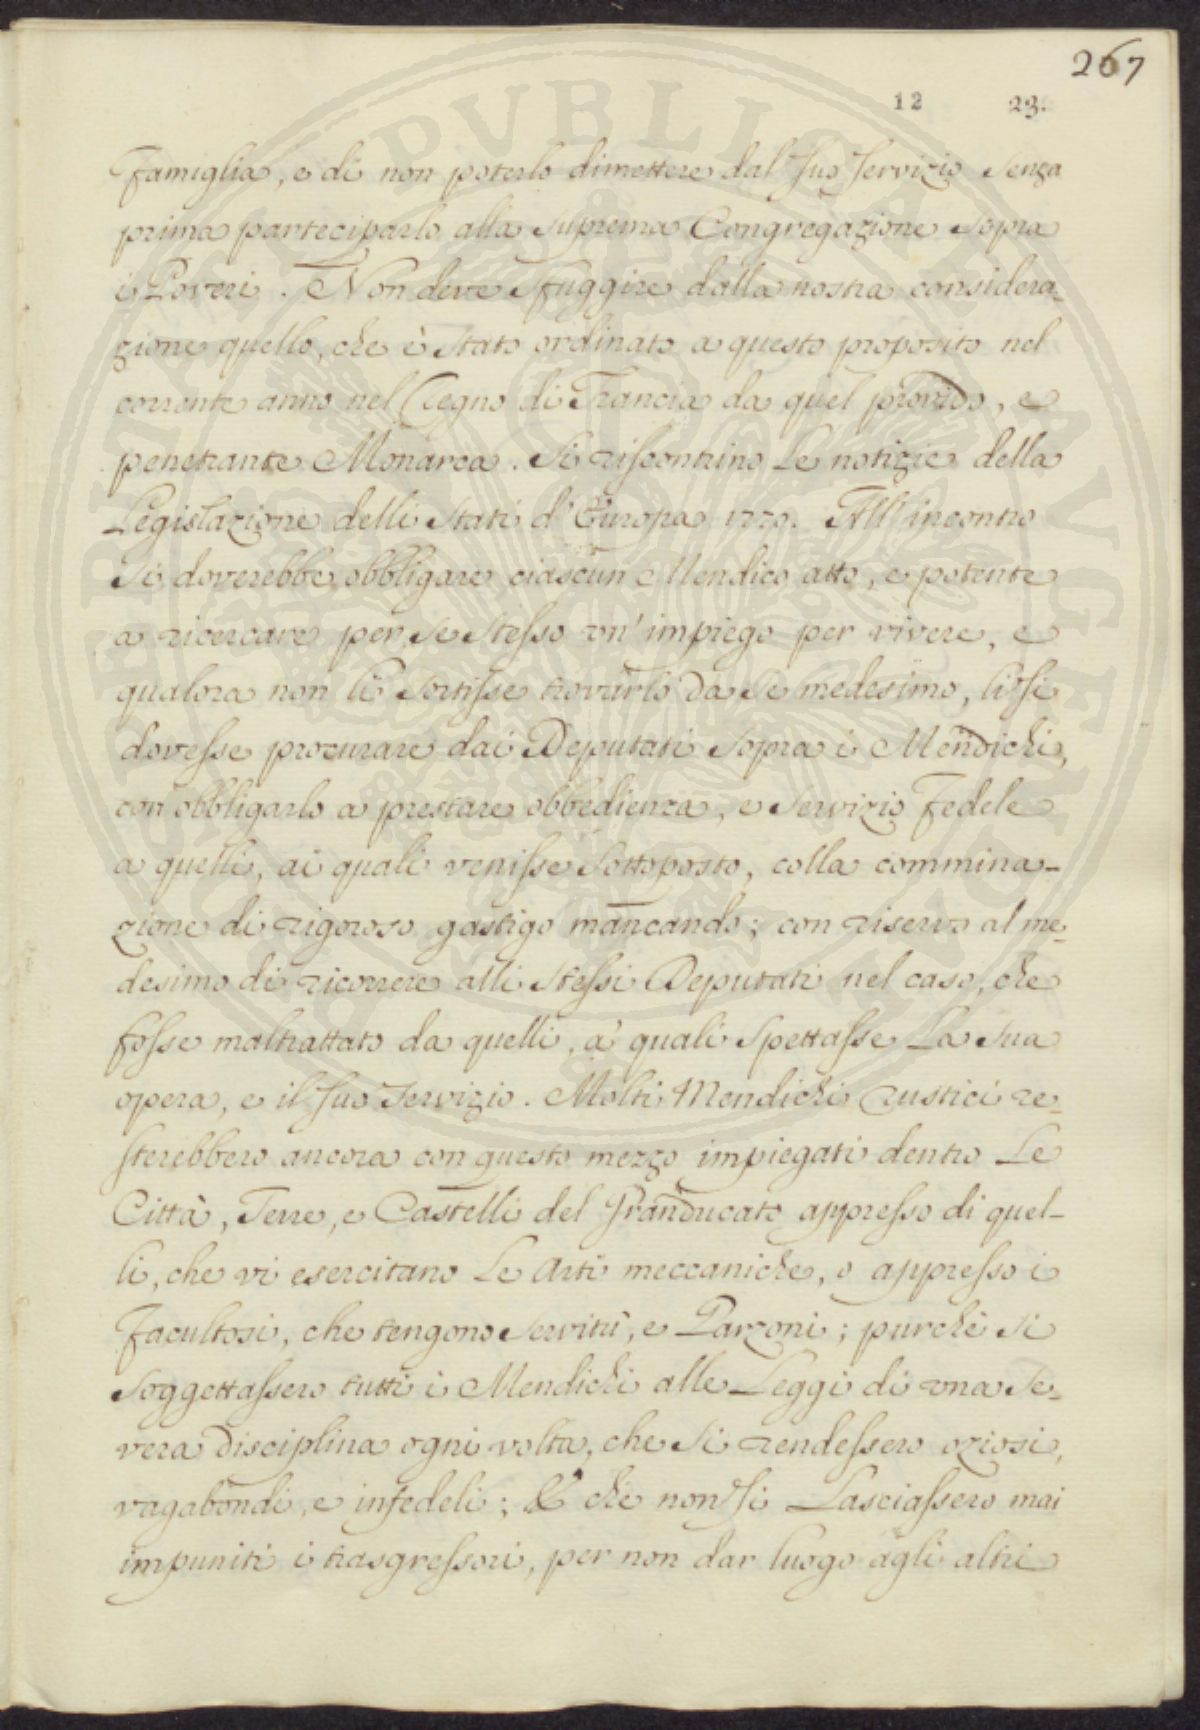 267
12 23.
Famiglia, e di non poterlo dimettere dal suo servizio senza
prima parteciparlo alla suprema Congregazione sopra
i Poveri. Non deve sfuggire dalla nostra considera-
zione quello, che è stato ordinato a questo proposito nel
corrente anno nel Regno di Francia da quel provido, e
penetrante Monarca. Si riscontrino Le notizie della
Legislazione delli Stati d'Europa 1770. All'incontro
si doverebbe obbligare ciascun Mendico atto, e potente
a ricercare per se stesso vn'impiego per vivere, e
qualora non li sortisse trovarlo da se medesimo, li si
dovesse procurare dai Deputati sopra i Mendichi,
con obbligarlo a prestare obbedienza, e servizio fedele
a quelli, ai quali venisse sottoposto, colla commina-
zione di rigoroso gastigo mancando; con riservo al me-
desimo di ricorrere alli stessi Deputati nel caso, che
fosse maltrattato da quelli, a' quali spettasse La sua
opera, e il suo servizio. Molti Mendichi rustici re-
sterebbero ancora con questo mezzo impiegati dentro Le
Città, Terre, e Castelli del Granducato appresso di quel-
li, che vi esercitano Le Arti meccaniche, o appresso i
facultosi, che tengono servitù, e Garzoni; purchè si
soggettassero tutti i Mendichi alle Leggi di vna se-
vera disciplina ogni volta, che si rendessero oziosi,
vagabondi, e infedeli; & che non si Lasciassero mai
impuniti i trasgressori, per non dar luogo agli altri
PVBLICAE